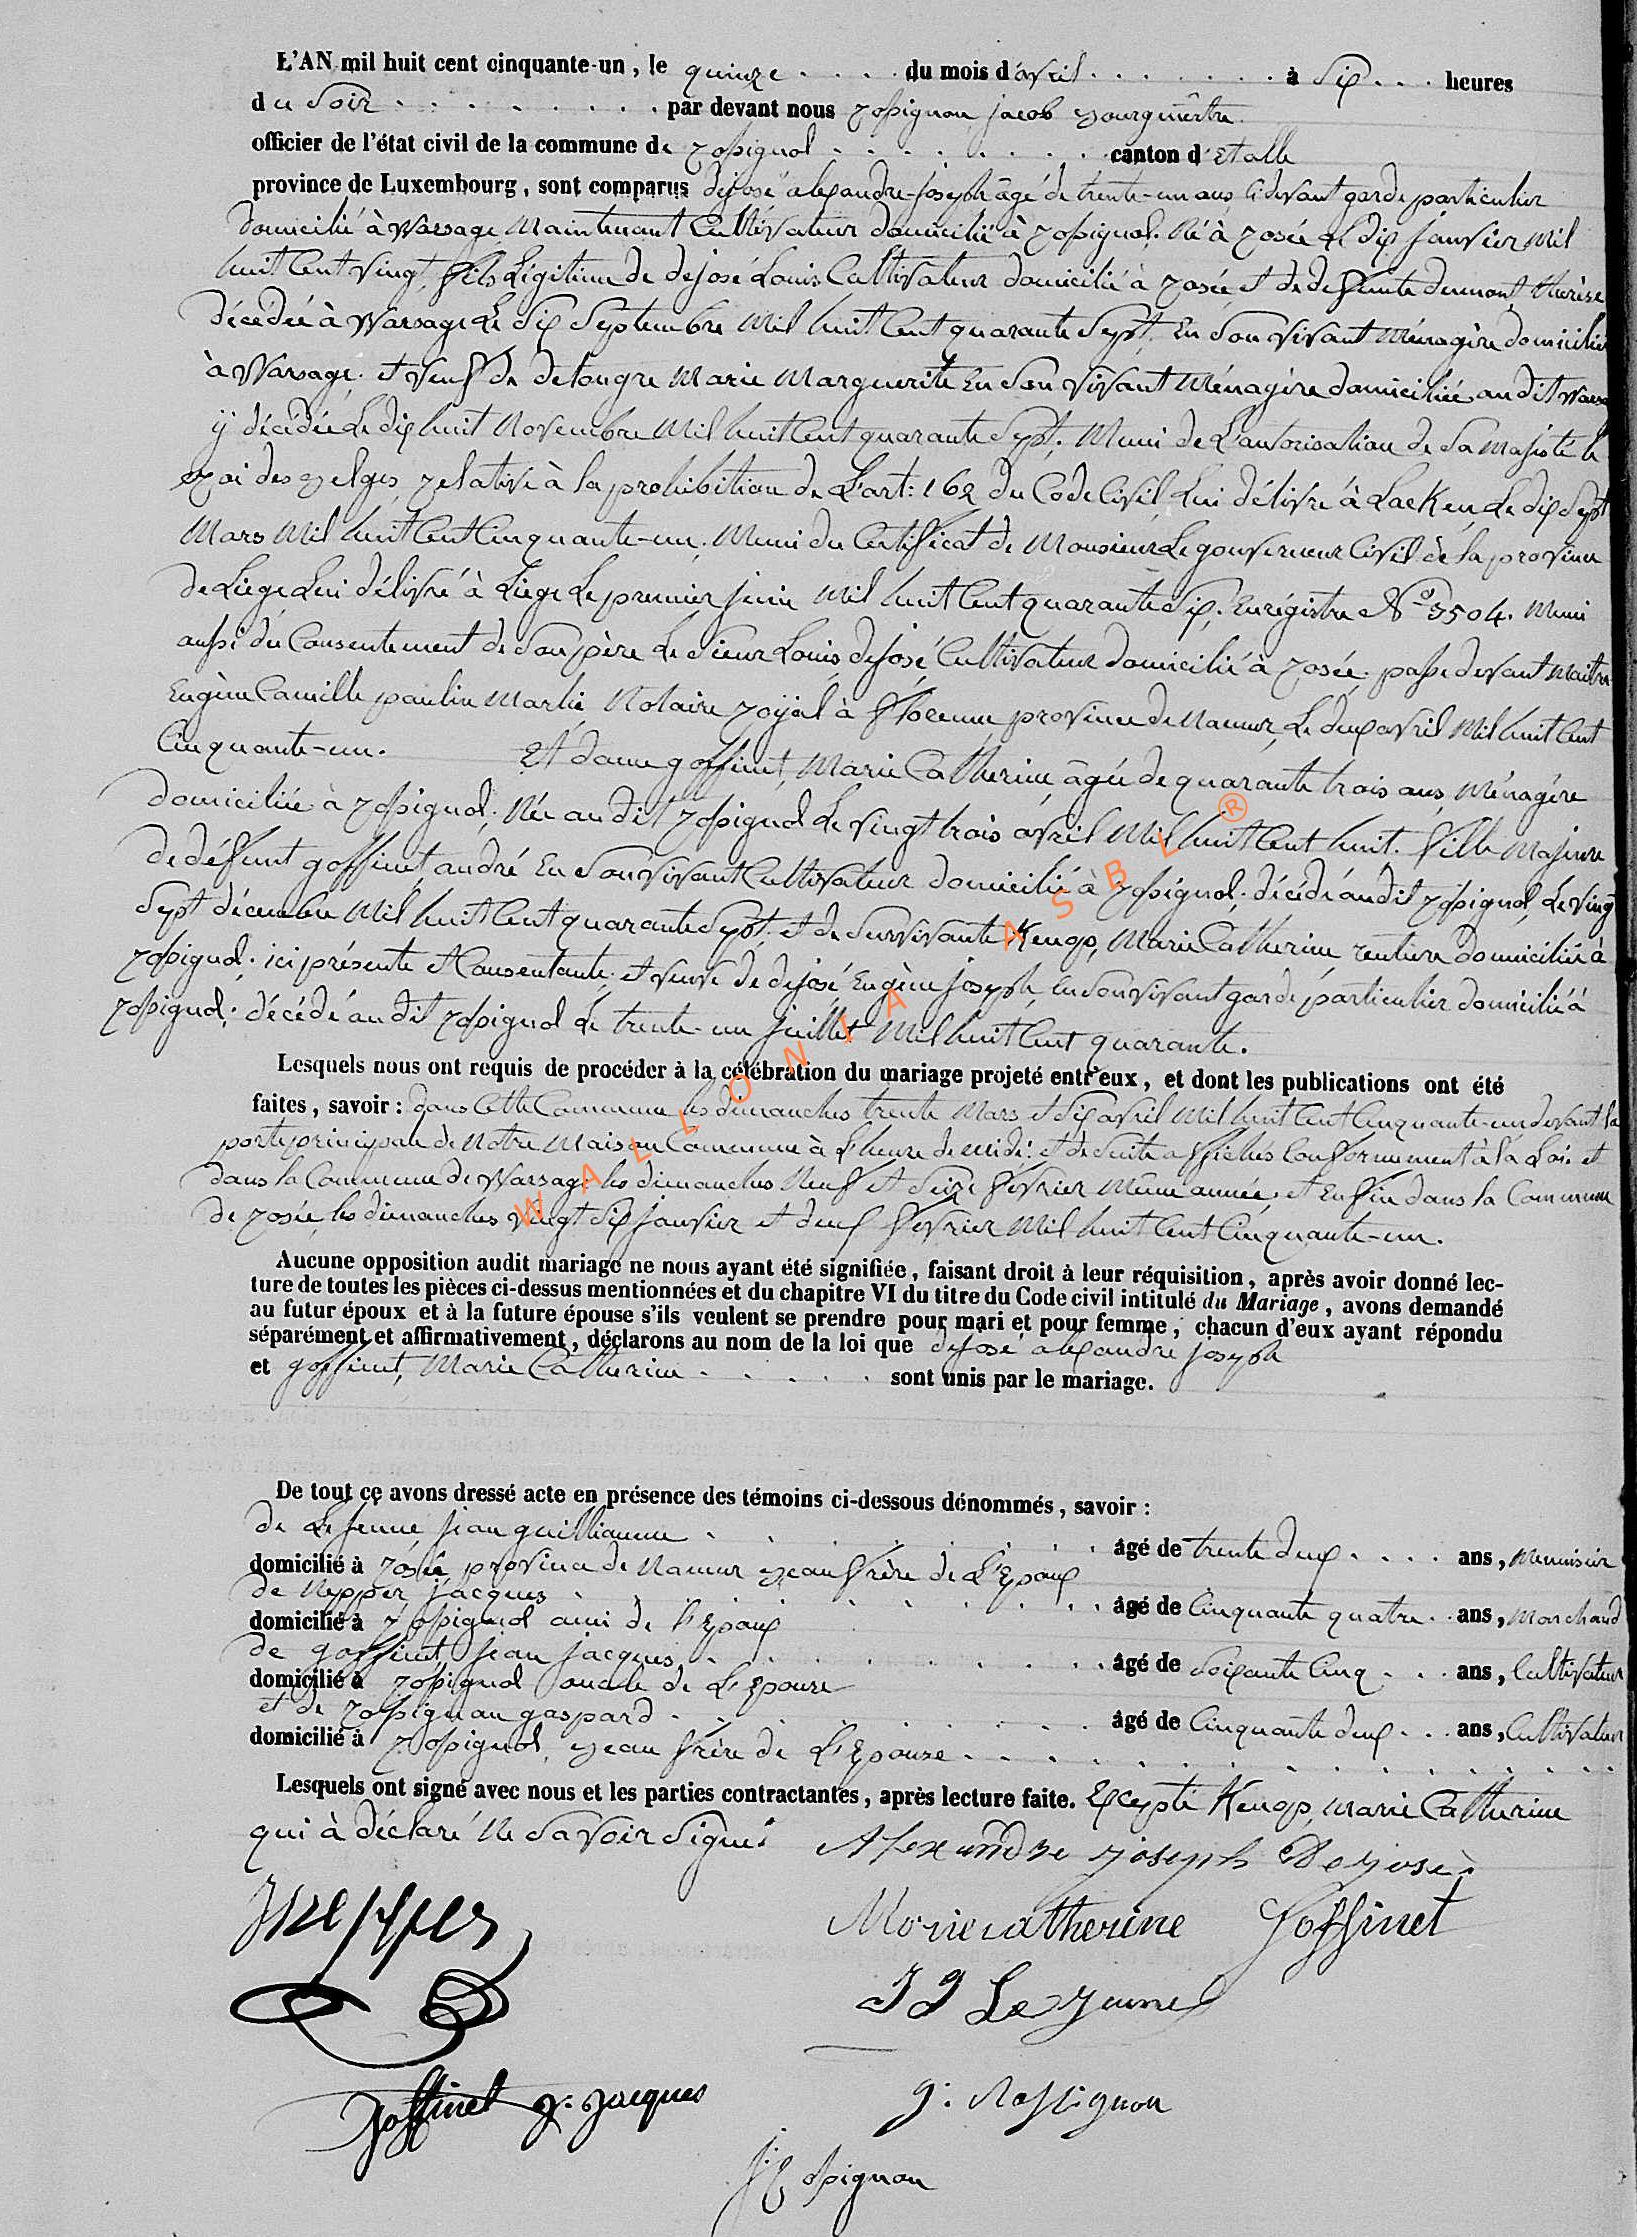 L'AN mil huit cent cinquante-un, le quinze . . . . du mois d'avril . . . . . . . à Six . . . heures
du Soir . . . . . . . . . par devant nous rossignon jacob Bourgmêstre
officier de l'état civil de la commune de rossignol . . . . . . . . canton d'Etalle
province de Luxembourg, sont comparus dejosé alexandre-joseph âgé de trente-un ans, ci devant garde particulier
domicilié à Warsage, Maintenant Cultivateur domicilié à rossignol. Né à rosée le dix janvier Mil
huit Cent vingt, fils Légitime de dejosé Louis Cultivateur domicilié à rosée et de defunte dumont Thérèse
décédée à Warsage Le dix Septembre Mil huit Cent quarante Sept, En Son vivant Ménagère domiciliée
à Warsage. et veuf de detongre Marie Marguerite En Son vivant Ménagère domiciliée au dit Warsage
ÿ décédée Le dix huit Novembre Mil huit Cent quarante Sept, Muni de L'autorisation de Sa Majesté le
roi des Belges, relative à la prohibition de L'art: 162 du Code Civil, Lui délivré à Laeken Le dix Sept
Mars Mil huit Cent Cinquante-un. Muni du Certificat de Monsieur Le gouverneur Civil de la province
de Liège Lui délivré à Liège Le premier juin Mil huit Cent quarante Six, Enrégistré No 3504. Muni
aussi du Consentement de Son père Le Sieur Louis dejosé, Cultivateur domicilié à rosée. passé devant Maitre
Eugène Camille paulin Marlie Notaire royal à florenne, province de Namur, Le deux avril Mil huit Cent
Cinquante-un. Et dame goffinet, Marie Catherine âgée de quarante trois ans, Ménagère
domiciliée à rossignol; Née au dit rossignol Le vingt trois avril Mil huit Cent huit. fille Majeure
de défunt goffinet andré En Son vivant Cultivateur domicilié à rossignol, décédé au dit rossignol, Le vingt
Sept décembre Mil huit Cent quarante Sept, et de Survivante Kenop, Marie Catherine, rentière domiciliée à
rossignol, ici présente et Consentante, et veuve de dejosé Eugène joseph En Son vivant garde particulier domicilié à
rossignol, décédé au dit rossignol Le trente-un juillet Mil huit Cent quarante.
Lesquels nous ont requis de procéder à la célébration du mariage projeté entr'eux, et dont les publications ont été
faites, savoir: dans Cette Commune les dimanches trente Mars et Six avril Mil huit Cent Cinquante-un devant la
porte principale de Notre Maison Commune à L'heure de midi: et de Suite affichés Conformement à la Loi. et
dans la Commune de Warsage les dimanches Neuf et Seize février Même année, et Enfin dans la Commune
de rosée, les dimanches vingt Six janvier et deux fevrier Mil huit Cent Cinquante-un.
Aucune opposition audit mariage ne nous ayant été signifiée, faisant droit à leur réquisition, après avoir donné lec-
ture de toutes les pièces ci-dessus mentionnées et du chapitre VI du titre du Code civil intitulé du Mariage, avons demandé
au futur époux et à la future épouse s'ils veulent se prendre pour mari et pour femme, chacun d'eux ayant répondu
séparément et affirmativement, déclarons au nom de la loi que dejosé alexandre joseph
et goffinet, Marie Catherine . . . . . sont unis par le mariage.
De tout ce avons dressé acte en présence des témoins ci-dessous dénommés, savoir:
de Lejeune jean guilliaume . . . . . . . âgé de trente deux . . . . ans, Menuisier
domicilié à rosée, province de Namur Beau frère de L'Epoux
de Nepper, jacques . . . . . . . . . âgé de Cinquante quatre . . ans, Marchand
domicilié à rossignol ami de l'Epoux
de goffinet, jean jacques . . . . . . . . . âgé de Soixante Cinq . . . ans, Cultivateur
domicilié à rossignol oncle de L'Epouse
et de rossignon gaspard . . . . . . . . . âgé de Cinquante deux . . . ans, Cultivateur
domicilié à rossignol, Beau frère de L'Epouse . . . . . . . . . . . .
Lesquels ont signé avec nous et les parties contractantes, après lecture faite. Excepté Kenop, Marie Catherine
qui à déclaré Ne Savoir Signer
Alexandre joseph Dejosé
JNepper
Marie catherine Goffinet
J G Lejeune
Goffinet J. Jacques
g. Rossignon
J. Rossignon
WALLONIA ASBL ®